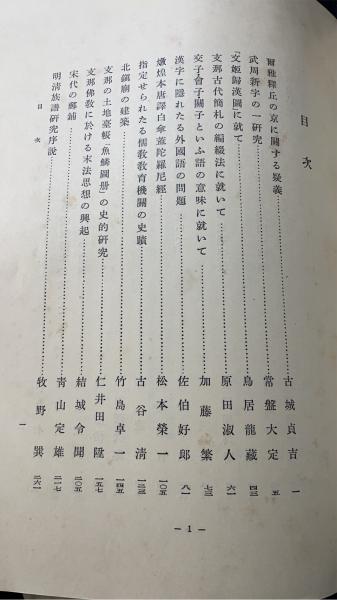 目次
爾雅釋丘の京に關する疑義……古城貞吉 一
武周新字の一研究……常盤大定 五
「文姬歸漢圖」に就て……鳥居龍藏 四三
支那古代簡札の編綴法に就いて……原田淑人 六一
交子・會子・關子といふ語の意味に就いて……加藤繁 七三
漢字に隱れたる外國語の問題……佐伯好郎 八一
燉煌本唐譯白傘蓋陀羅尼經……松本榮一 一〇五
指定せられたる儒教教育機關の史蹟……古谷清 一二三
北鎭廟の建築……竹島卓一 一四五
支那の土地臺帳「魚鱗圖册」の史的研究……仁井田陞 一五七
支那佛教に於ける末法思想の興起……結城令聞 二〇五
宋代の郵鋪……靑山定雄 二一七
明淸族譜研究序說……牧野巽 二六一
目次
一
— 1 —